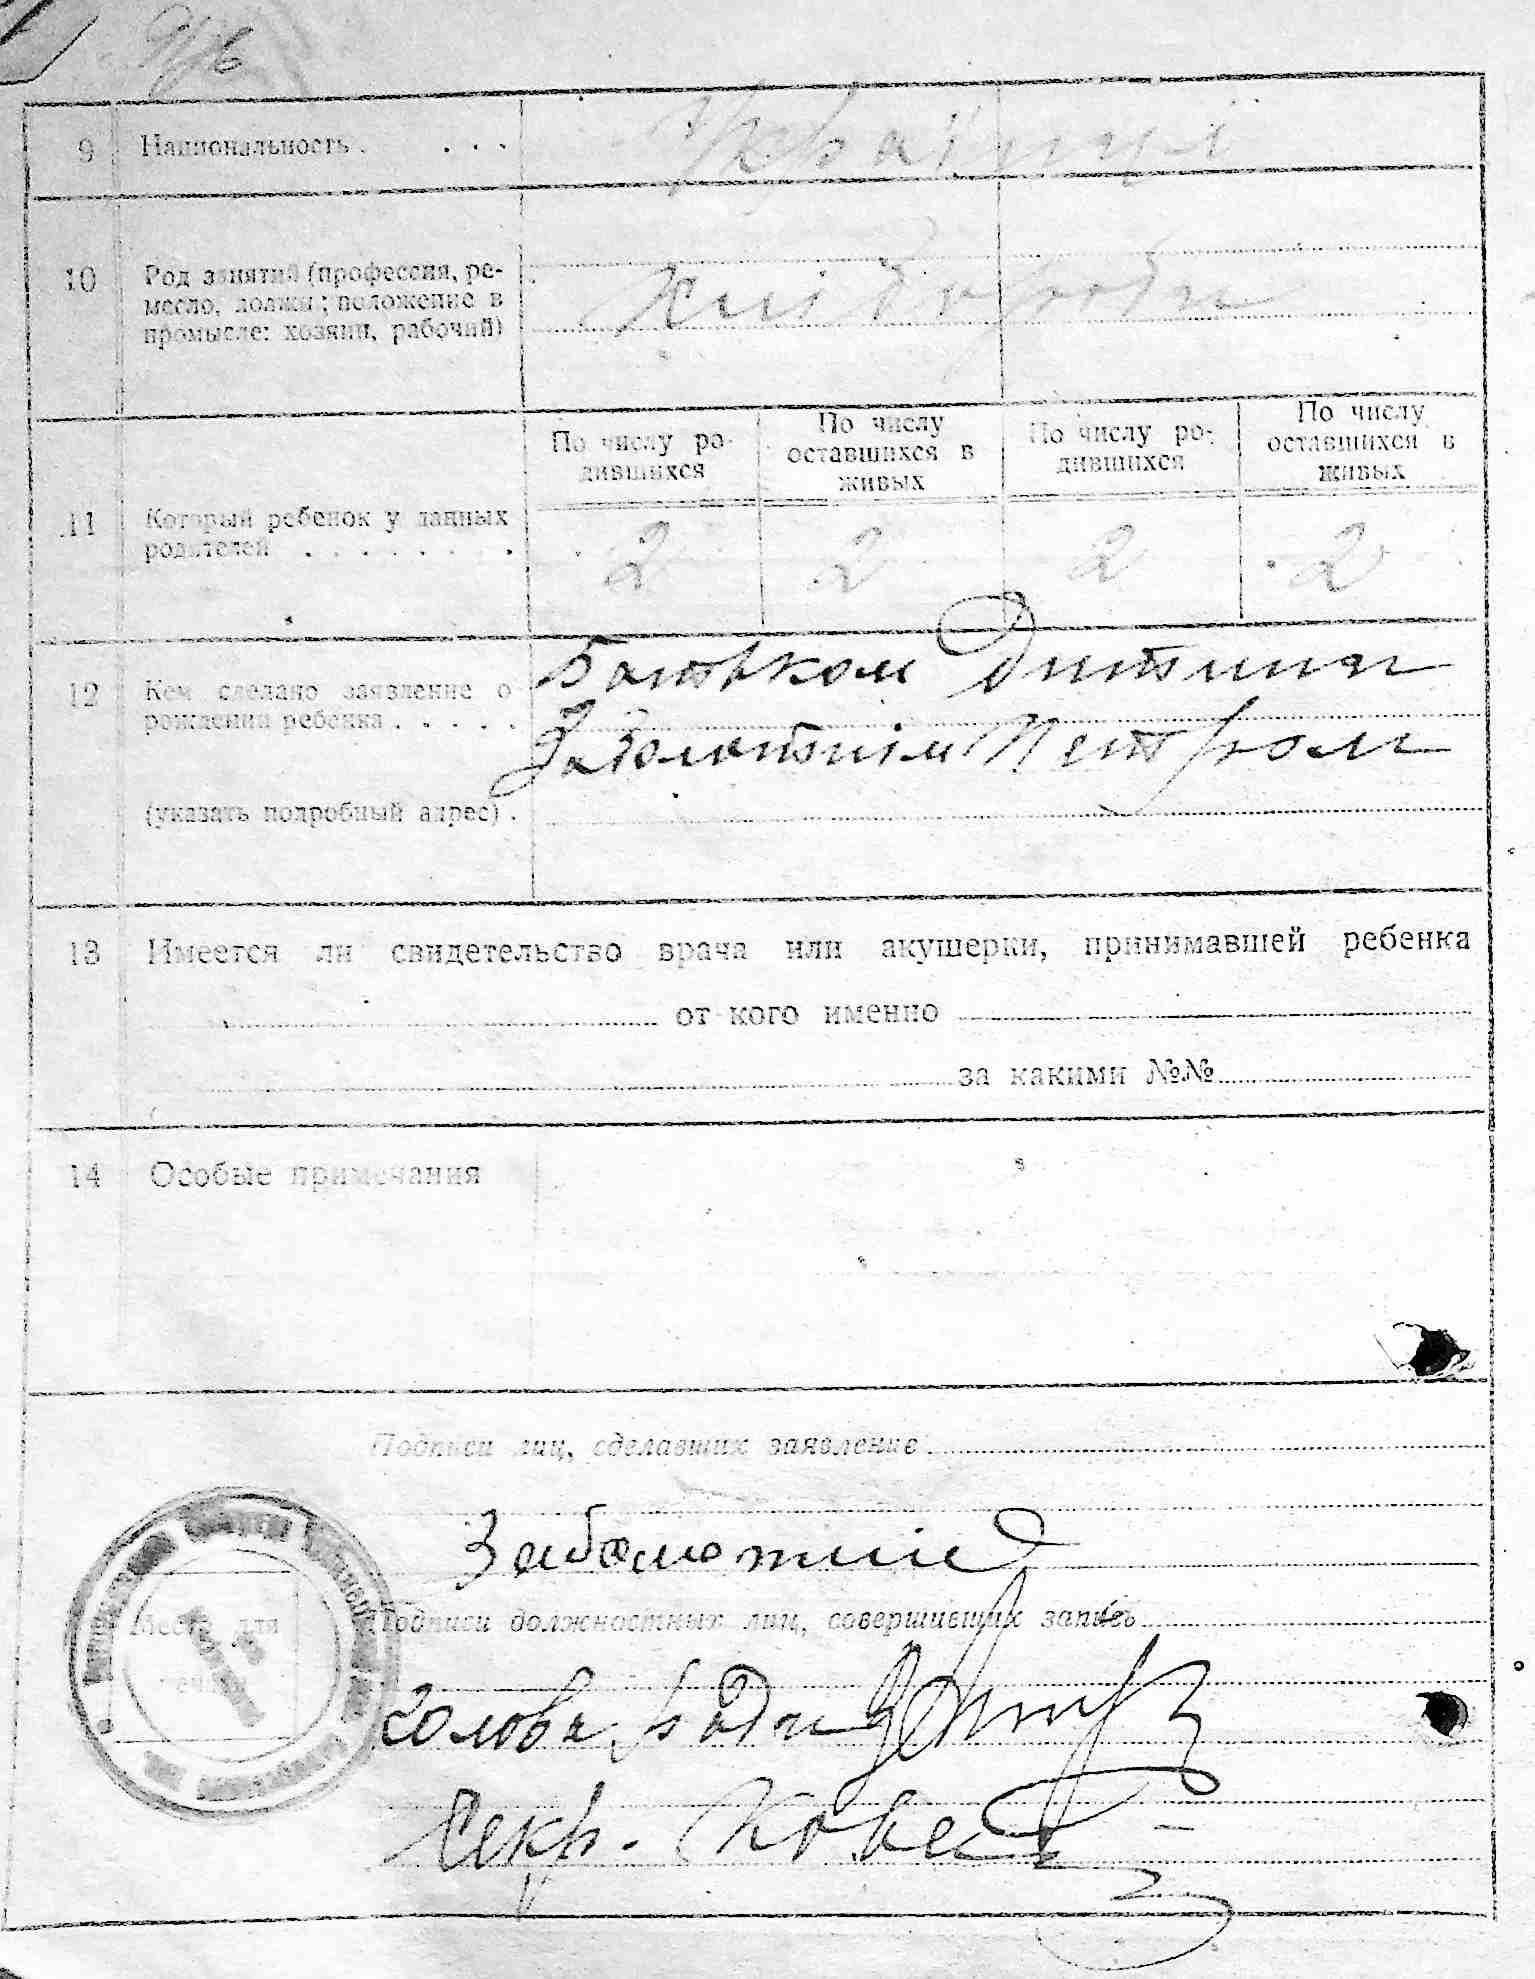 9 Национальность . . . . Українці
10 Род занятий (профессия, ре-
месло, должн; положение в
промысле: хозяин, рабочий)
Хлібороби
По числу ро-
дившихся
По числу
оставшихся в
живых
По числу ро-
дившихся
По числу
оставшихся в
живых
11 Который ребенок у данных
родителей . . . . . . . .
2 2 2 2
12 Кем сделано заявление о
рождении ребенка . . . . .
Батьком Дитини
Заболотнім Петром
(указать подробный адрес) .
13 Имеется ли свидетельство врача или акушерки, принимавшей ребенка
от кого именно
за какими №№
14 Особые примечания
Подписи лиц, сделавших заявление
Заболотний
Подписи должностных лиц, совершивших запись
Место для
печати
Голова Ради
Секр.